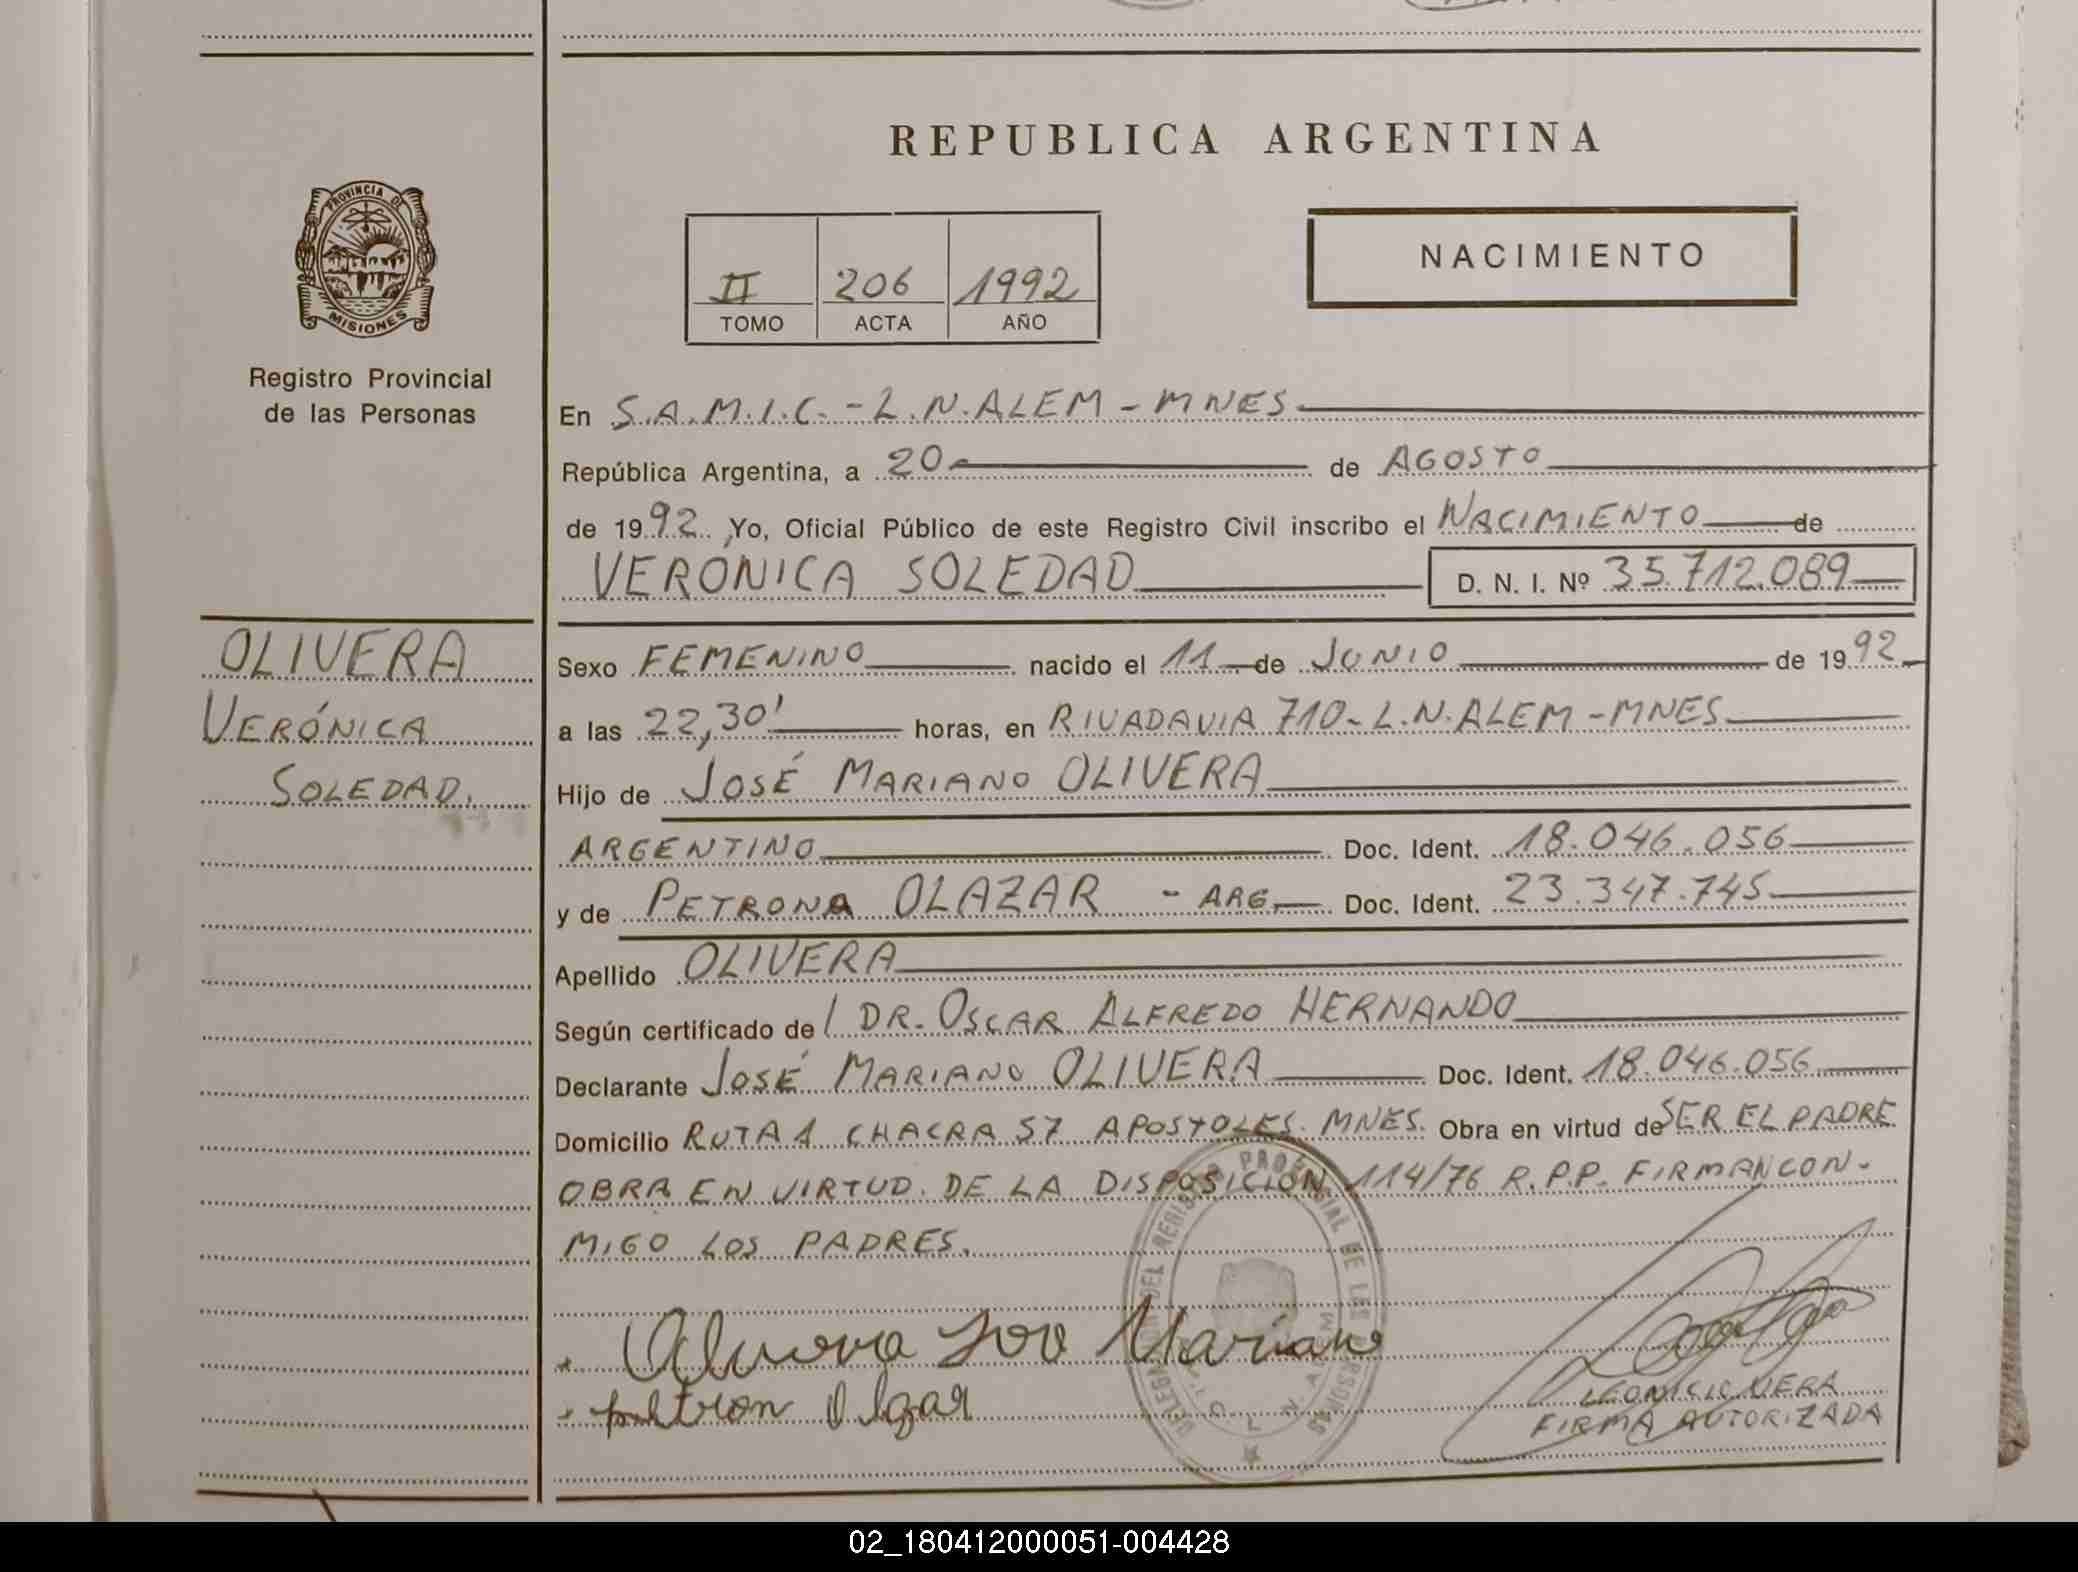 REPUBLICA ARGENTINA
PROVINCIA DE
MISIONES
Registro Provincial
de las Personas
II 206 1992
TOMO ACTA AÑO
NACIMIENTO
En S.A.M.I.C. - L.N.ALEM - MNES
República Argentina, a 20 de AGOSTO
de 1992, Yo, Oficial Público de este Registro Civil inscribo el NACIMIENTO de
VERÓNICA SOLEDAD D. N. I. Nº 35.712.089
OLIVERA
VERÓNICA
SOLEDAD.
Sexo FEMENINO nacido el 11 de JUNIO de 1992
a las 22,30' horas, en RIVADAVIA 710- L.N.ALEM - MNES
Hijo de JOSÉ MARIANO OLIVERA
ARGENTINO Doc. Ident. 18.046.056
y de PETRONA OLAZAR - ARG. Doc. Ident. 23.347.745
Apellido OLIVERA
Según certificado de / DR. OSCAR ALFREDO HERNANDO
Declarante JOSÉ MARIANO OLIVERA Doc. Ident. 18.046.056
Domicilio RUTA 1 CHACRA 57 APOSTOLES. MNES. Obra en virtud de SER EL PADRE
OBRA EN VIRTUD DE LA DISPOSICIÓN 114/76 R.P.P. FIRMAN CON-
MIGO LOS PADRES.
Mariano
LEONICIO VERA
FIRMA AUTORIZADA
02_180412000051-004428